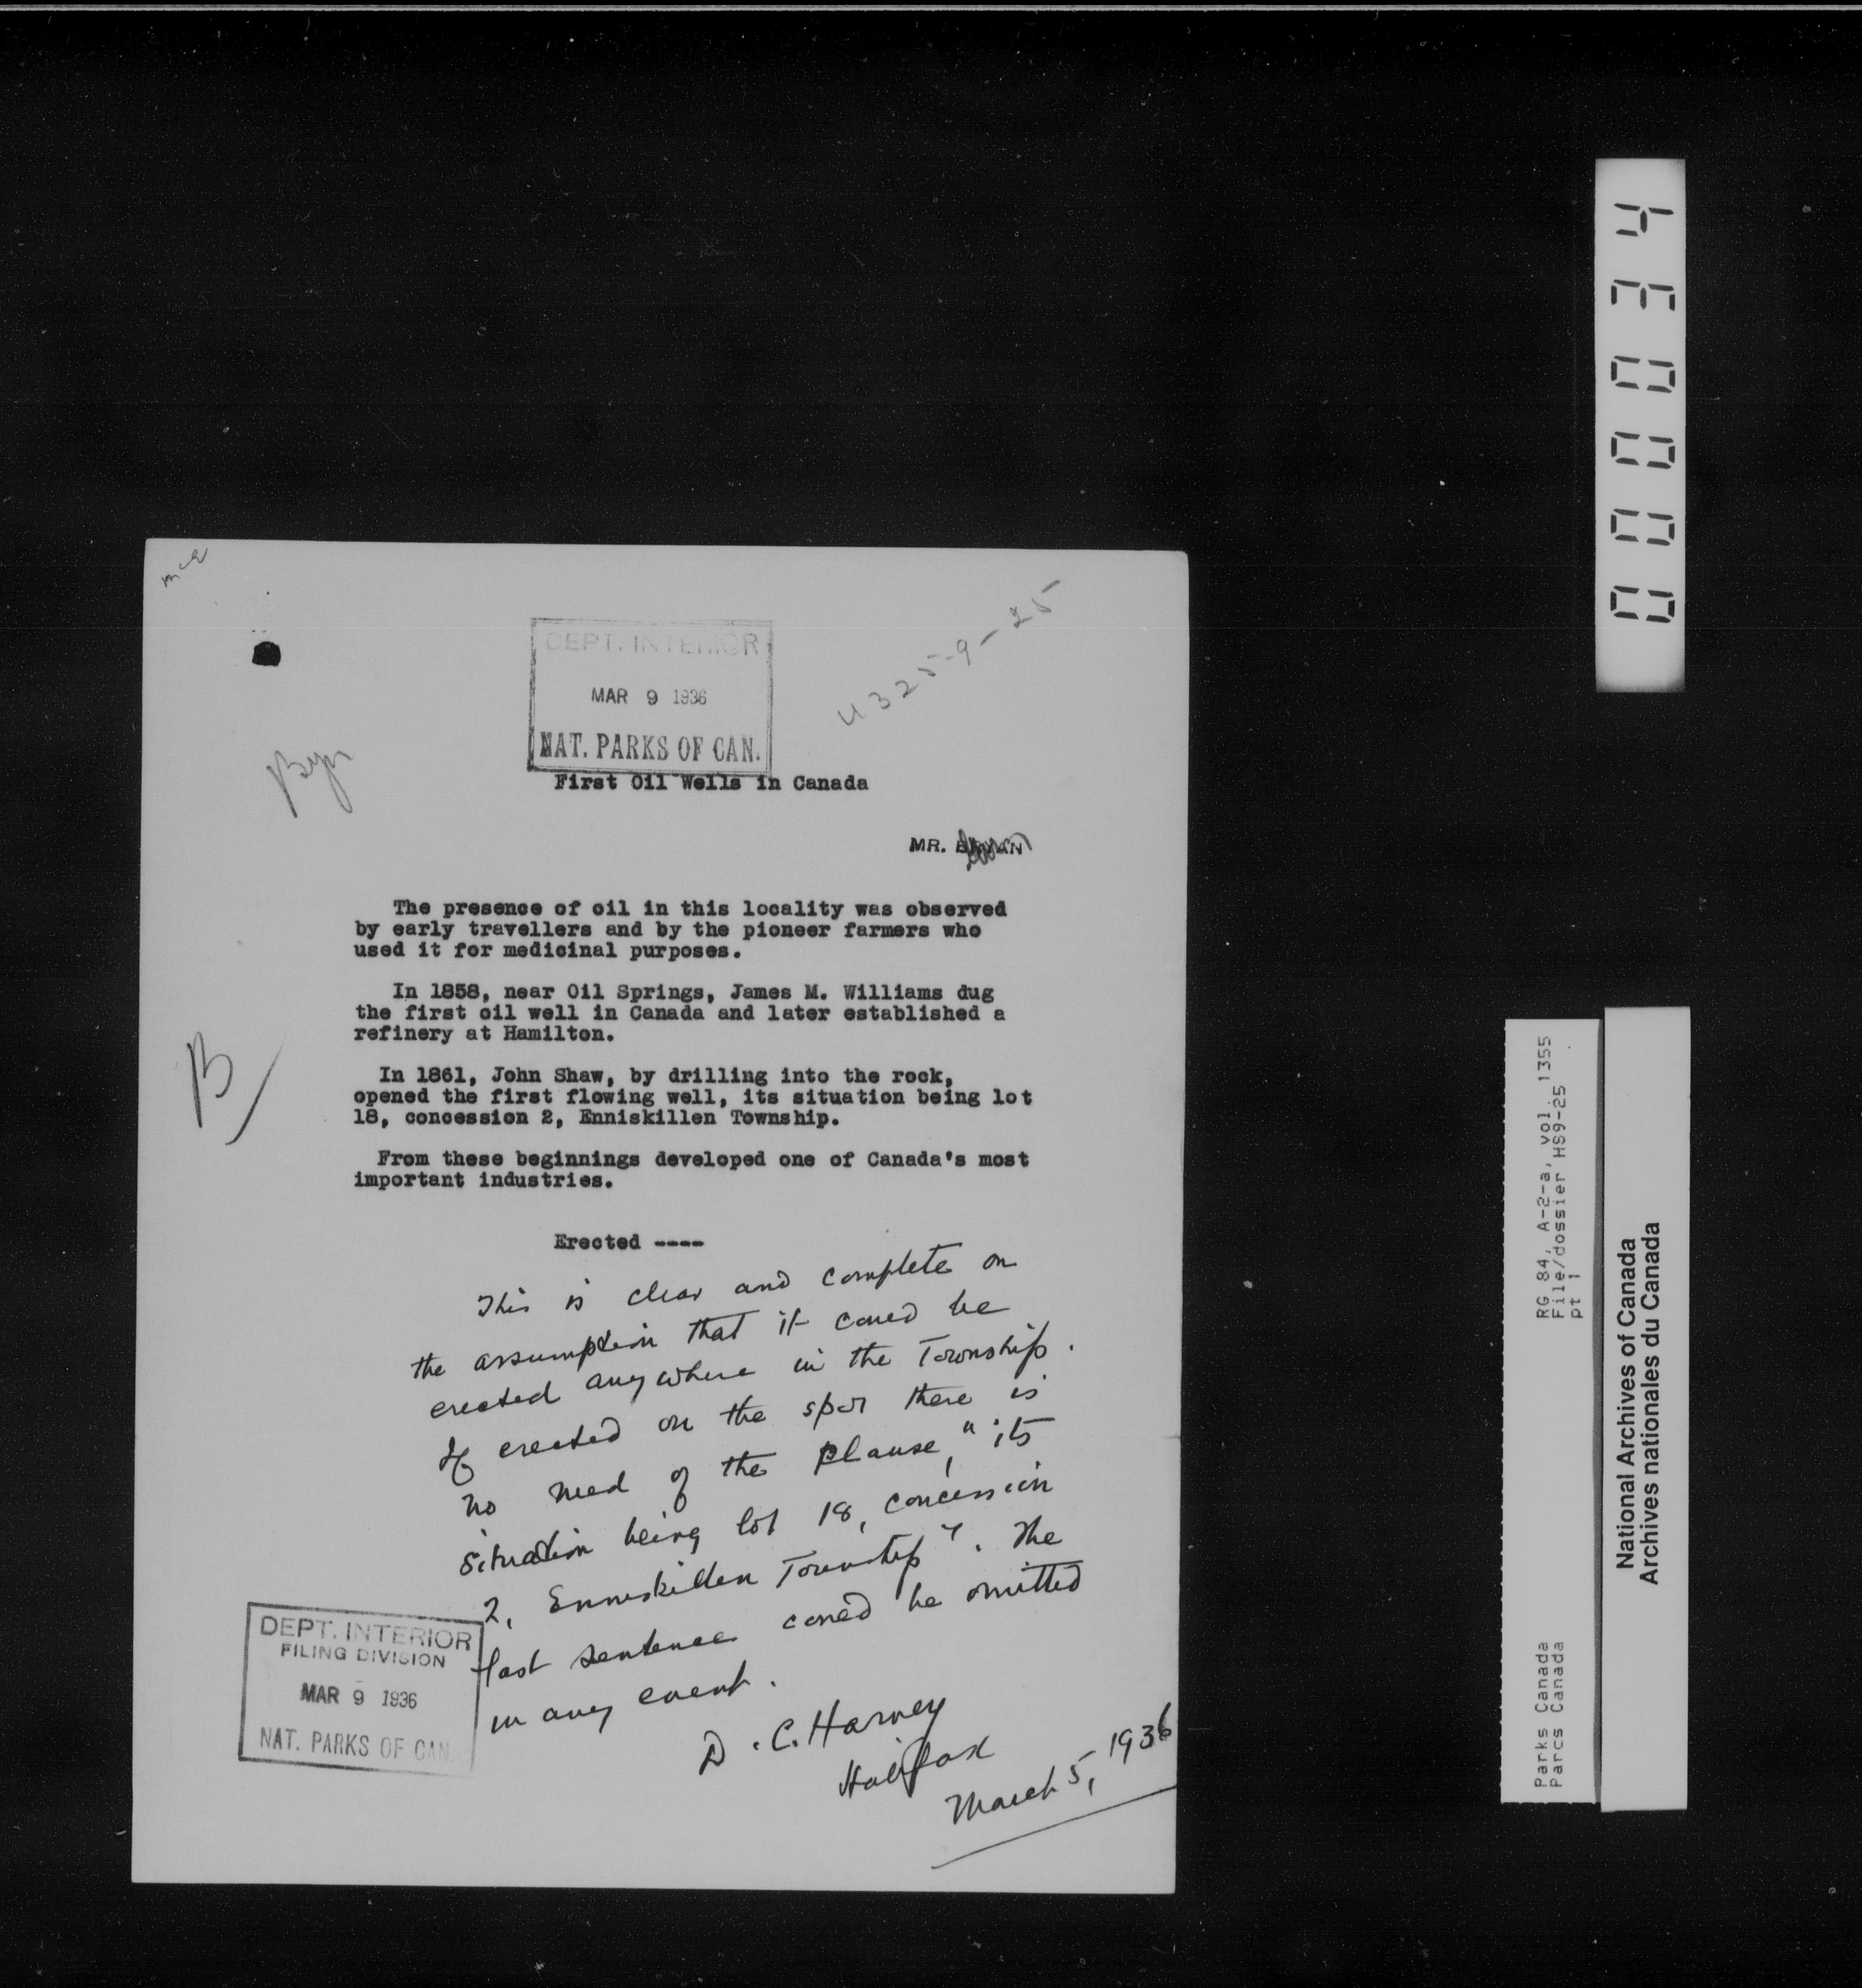 DEPT. INTERIOR
MAR 9 1936
NAT. PARKS OF CAN.
U325-9-25
First Oil Wells in Canada
MR.
The presence of oil in this locality was observed
by early travellers and by the pioneer farmers who
used it for medicinal purposes.
In 1858, near Oil Springs, James M. Williams dug
the first oil well in Canada and later established a
refinery at Hamilton.
B
In 1861, John Shaw, by drilling into the rock,
opened the first flowing well, its situation being lot
18, concession 2, Enniskillen Township.
From these beginnings developed one of Canada's most
important industries.
Erected ----
This is clear and complete on
the assumption that it could be
erected anywhere in the Township.
If erected on the spot there is
no need of the clause, "its
situation being lot 18, concession
2, Enniskillen Township". The
last sentence could be omitted
in any event.
D. C. Harvey
Halifax
March 5, 1936
DEPT. INTERIOR
FILING DIVISION
MAR 9 1936
NAT. PARKS OF CAN.
RG 84, A-2-a, vol. 1355
File/dossier HS9-25
pt 1
Parks Canada
Parcs Canada
National Archives of Canada
Archives nationales du Canada